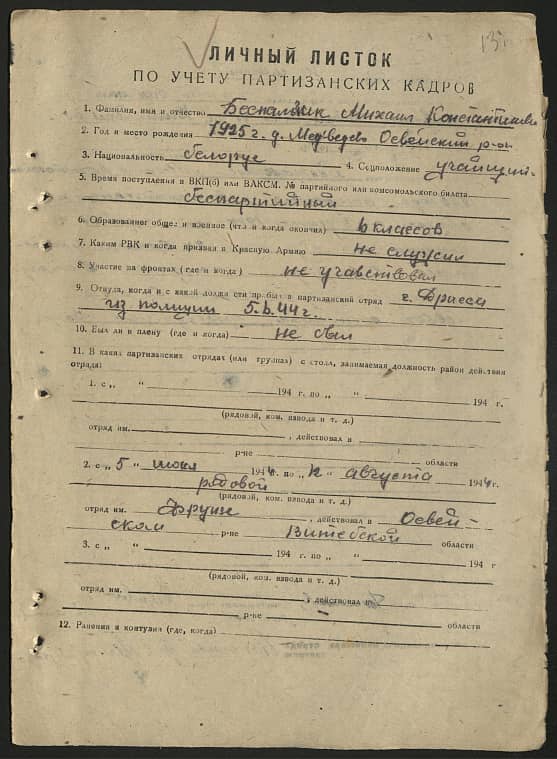 13
ЛИЧНЫЙ ЛИСТОК
ПО УЧЕТУ ПАРТИЗАНСКИХ КАДРОВ
1. Фамилия, имя и отчество Михаил Константинович
2. Год и место рождения 1925 г. д. Медведево Освейский р-он
3. Национальность белорус 4. Соцположение учащий-
5. Время поступления в ВКП(б) или ВЛКСМ. № партийного или комсомольского билета
беспартийный
6. Образование общее и военное (что и когда окончил) 6 классов
7. Каким РВК и когда призван в Красную Армию не служил
8. Участие на фронтах (где и когда) не учавствовал
9. Откуда, когда и с какой должности прибыл в партизанский отряд г. Дрисса
из полиции 5.6.44 г.
10. Был ли в плену (где и когда) не был
11. В каких партизанских отрядах (или группах) с кого, занимаемая должность район действия
отряда:
1. с „ “ 194 г. по „ “ 194 г.
(рядовой, ком. взвода и т. д.)
отряд им. , действовал в
р-не области
2. с „ 5 “ июня 1944 г. по „ 12 “ августа 1944 г.
рядовой
(рядовой, ком. взвода и т. д.)
отряд им. Фрунзе , действовал в Освей-
ском р-не Витебской области
3. с „ “ 194 г. по „ “ 194 г
(рядовой, ком. взвода и т. д.)
отряд им. , действовал в
р-не области
12. Ранения и контузия (где, когда)